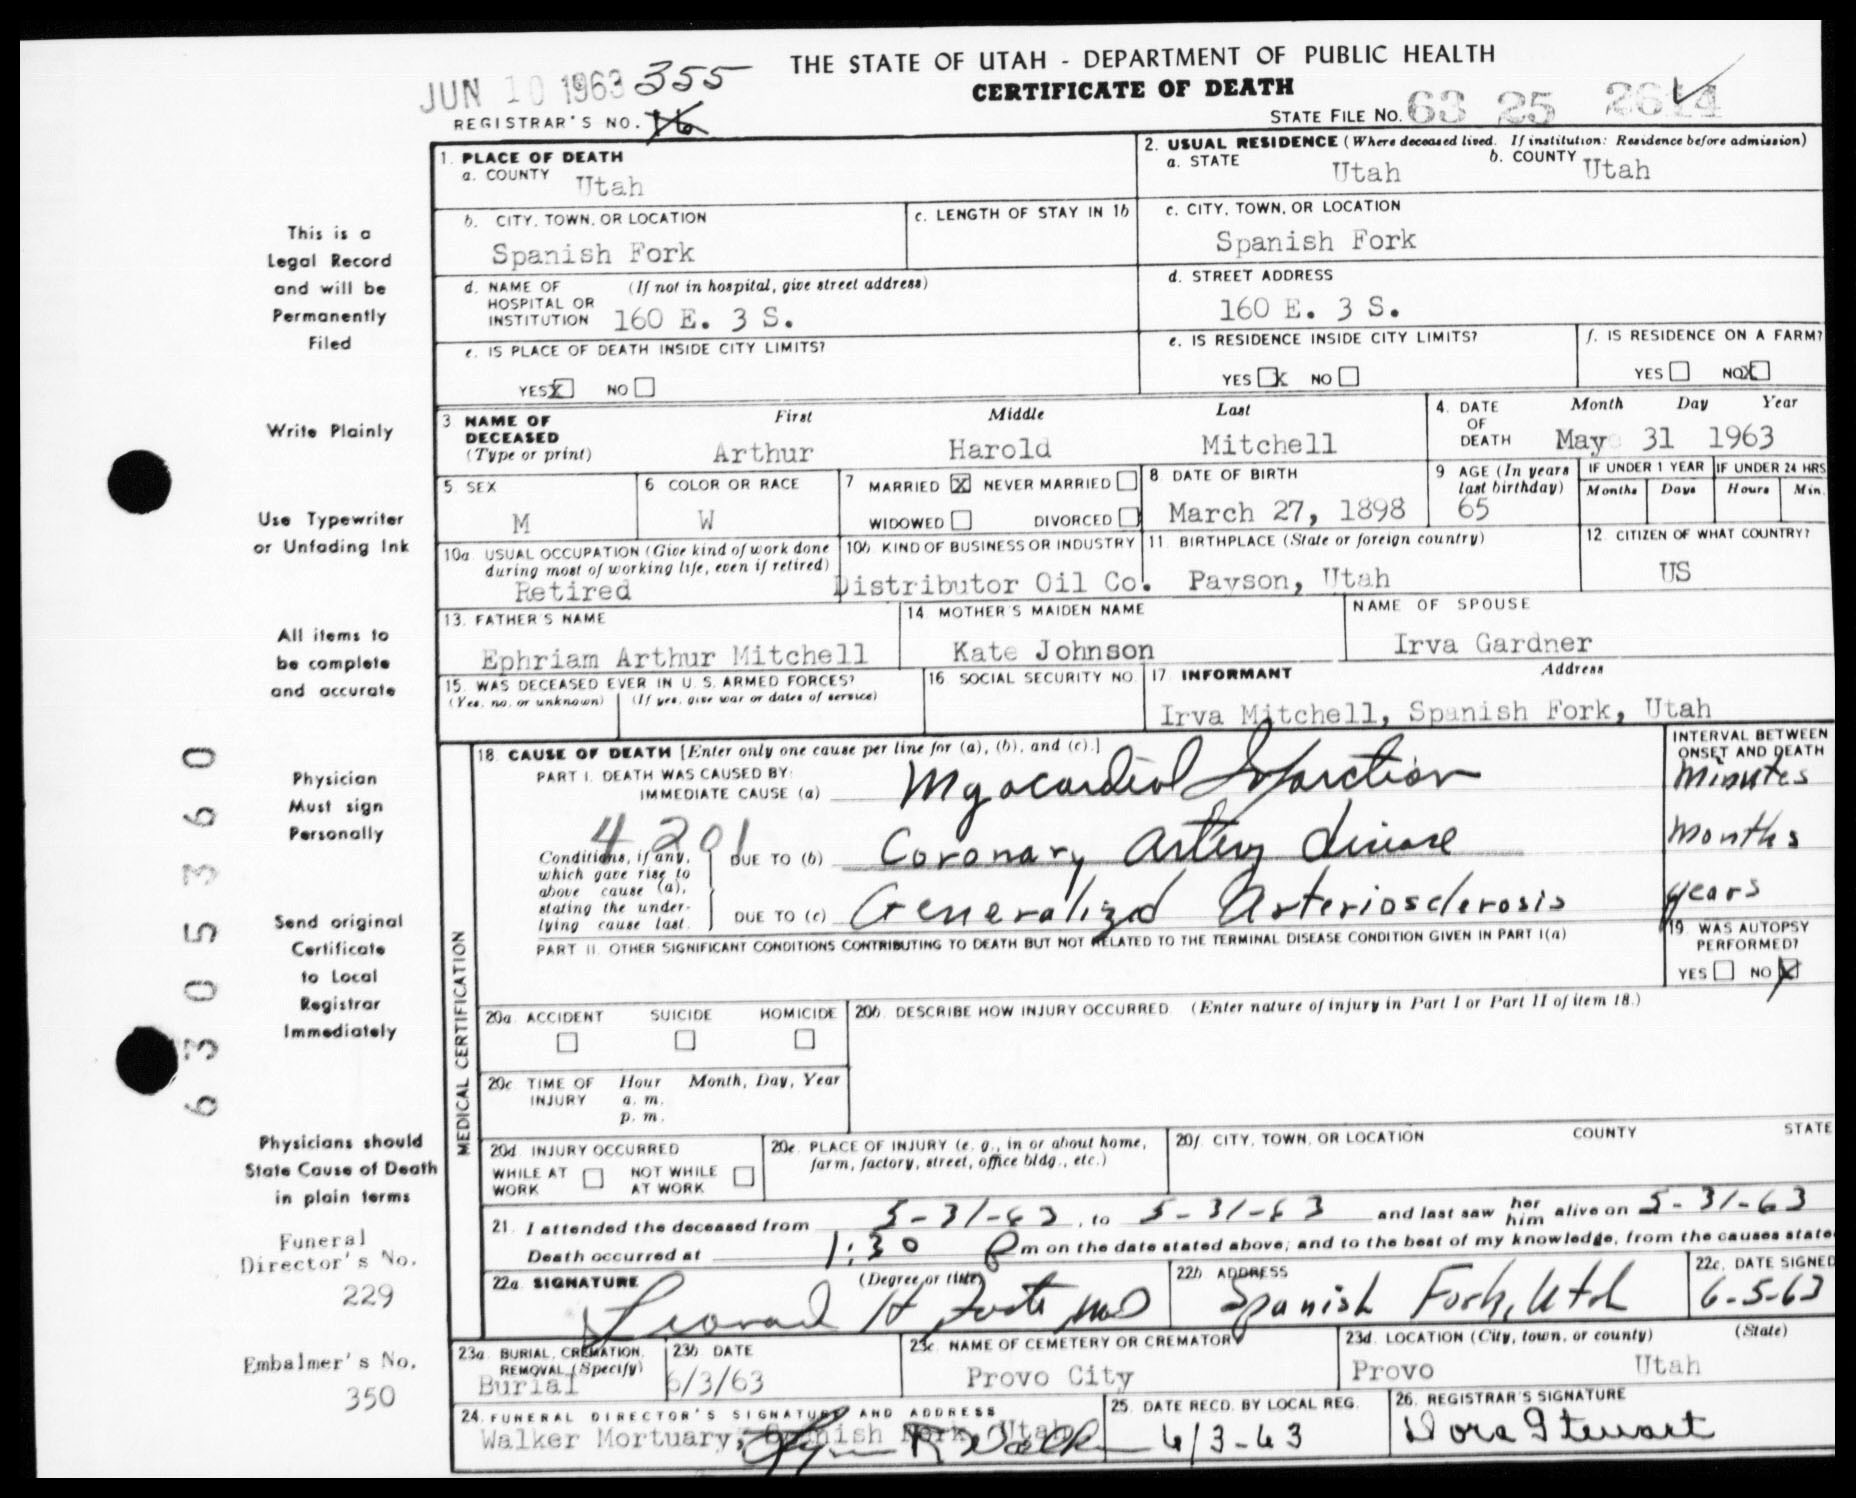 THE STATE OF UTAH - DEPARTMENT OF PUBLIC HEALTH
CERTIFICATE OF DEATH
JUN 10 1963 355
REGISTRAR'S NO. 16
STATE FILE NO. 63 25
1. PLACE OF DEATH
a. COUNTY Utah
2. USUAL RESIDENCE (Where deceased lived. If institution: Residence before admission)
a. STATE Utah b. COUNTY Utah
b. CITY, TOWN, OR LOCATION
Spanish Fork
c. LENGTH OF STAY IN 1b
c. CITY, TOWN, OR LOCATION
Spanish Fork
d. NAME OF HOSPITAL OR INSTITUTION (If not in hospital, give street address)
160 E. 3 S.
d. STREET ADDRESS
160 E. 3 S.
e. IS PLACE OF DEATH INSIDE CITY LIMITS?
YES X NO
e. IS RESIDENCE INSIDE CITY LIMITS?
YES X NO
f. IS RESIDENCE ON A FARM?
YES NO X
3 NAME OF DECEASED (Type or print)
First Middle Last
Arthur Harold Mitchell
4. DATE OF DEATH
Month Day Year
May 31 1963
5. SEX
M
6 COLOR OR RACE
W
7 MARRIED X NEVER MARRIED
WIDOWED DIVORCED
8 DATE OF BIRTH
March 27, 1898
9 AGE (In years last birthday)
65
IF UNDER 1 YEAR
Months Days
IF UNDER 24 HRS
Hours Min.
10a. USUAL OCCUPATION (Give kind of work done during most of working life, even if retired)
Retired
10b. KIND OF BUSINESS OR INDUSTRY
Distributor Oil Co.
11. BIRTHPLACE (State or foreign country)
Payson, Utah
12. CITIZEN OF WHAT COUNTRY?
US
13. FATHER'S NAME
Ephriam Arthur Mitchell
14. MOTHER'S MAIDEN NAME
Kate Johnson
NAME OF SPOUSE
Irva Gardner
15. WAS DECEASED EVER IN U. S. ARMED FORCES?
(Yes, no, or unknown) (If yes, give war or dates of service)
16. SOCIAL SECURITY NO.
17. INFORMANT Address
Irva Mitchell, Spanish Fork, Utah
MEDICAL CERTIFICATION
18. CAUSE OF DEATH [Enter only one cause per line for (a), (b), and (c).]
INTERVAL BETWEEN ONSET AND DEATH
PART I. DEATH WAS CAUSED BY:
IMMEDIATE CAUSE (a) Myocardial Infarction minutes
4201
Conditions, if any, which gave rise to above cause (a), stating the underlying cause last.
DUE TO (b) Coronary Artery disease months
DUE TO (c) Generalized Arteriosclerosis years
PART II. OTHER SIGNIFICANT CONDITIONS CONTRIBUTING TO DEATH BUT NOT RELATED TO THE TERMINAL DISEASE CONDITION GIVEN IN PART I(a)
19. WAS AUTOPSY PERFORMED?
YES NO X
20a. ACCIDENT SUICIDE HOMICIDE
20b. DESCRIBE HOW INJURY OCCURRED. (Enter nature of injury in Part I or Part II of item 18.)
20c. TIME OF INJURY Hour Month, Day, Year
a. m.
p. m.
20d. INJURY OCCURRED
WHILE AT WORK NOT WHILE AT WORK
20e. PLACE OF INJURY (e. g., in or about home, farm, factory, street, office bldg., etc.)
20f. CITY, TOWN, OR LOCATION COUNTY STATE
21. I attended the deceased from 5-31-63, to 5-31-63 and last saw her him alive on 5-31-63
Death occurred at 1:30 P m on the date stated above; and to the best of my knowledge, from the causes state
22a. SIGNATURE (Degree or title)
Leonard H MD
22b. ADDRESS
Spanish Fork, Utah
22c. DATE SIGNED
6-5-63
23a. BURIAL, CREMATION, REMOVAL (Specify)
Burial
23b. DATE
6/3/63
23c. NAME OF CEMETERY OR CREMATORY
Provo City
23d. LOCATION (City, town, or county) (State)
Provo Utah
24. FUNERAL DIRECTOR'S SIGNATURE AND ADDRESS
Walker Mortuary, Spanish Fork, Utah
25. DATE RECD. BY LOCAL REG.
6/3-63
26. REGISTRAR'S SIGNATURE
Dora Stewart
This is a
Legal Record
and will be
Permanently
Filed
Write Plainly
Use Typewriter
or Unfading Ink
All items to
be complete
and accurate
Physician
Must sign
Personally
Send original
Certificate
to Local
Registrar
Immediately
Physicians should
State Cause of Death
in plain terms
Funeral
Director's No.
229
Embalmer's No.
350
6305360